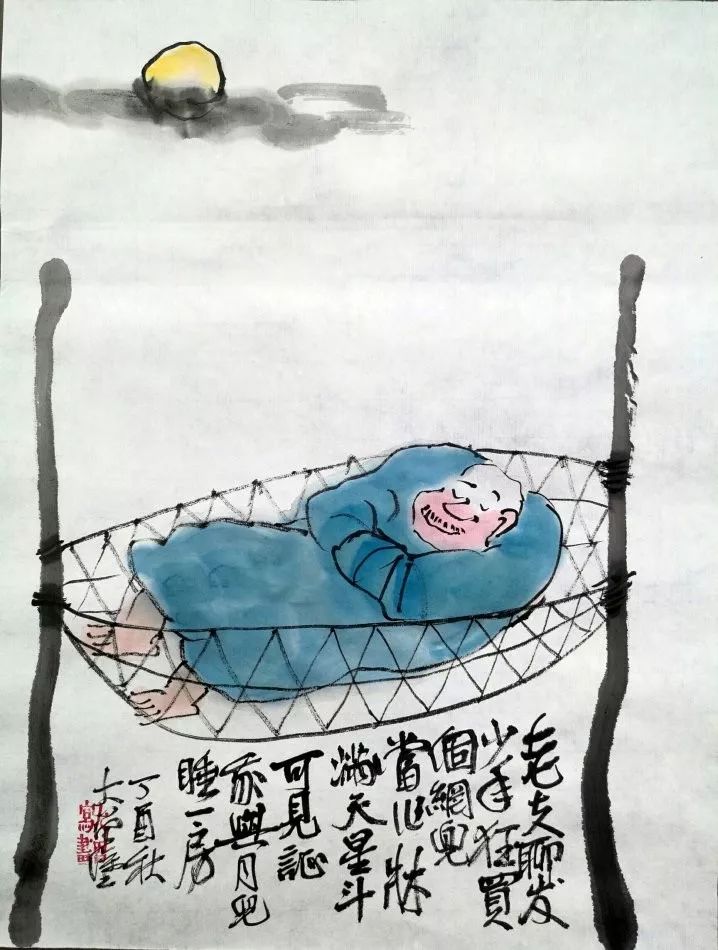 老夫聊发
少年狂買
個網兜
當作牀
滿天星斗
可見証
我與月兒
睡一房
丁酉秋
大
寫畫